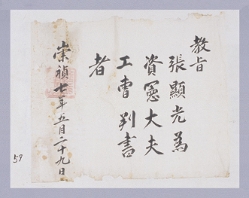 教旨
張顯光為
資憲大夫
工曹判書
者
崇禎七年五月二十九日
59